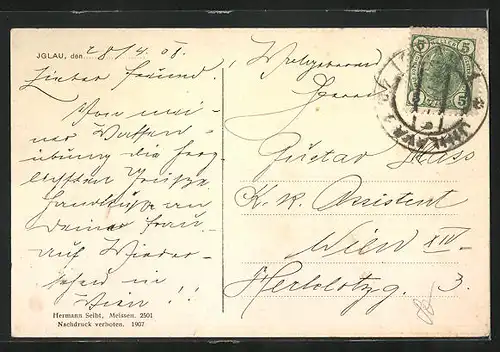 JGLAU, den 28/4. 08.
Lieber Freund!
Von mei-
ner Waffen-
übung die herz-
lichsten Grüsse
Handküsse an
Deine Frau
auf Wieder-
sehen in
Wien!!
Hermann Seibt, Meissen. 2501
Nachdruck verboten. 1907
Wohlgeboren
Herrn
Gustav
K. k. Assistent
Wien XIV.
3.
5 5
5 5